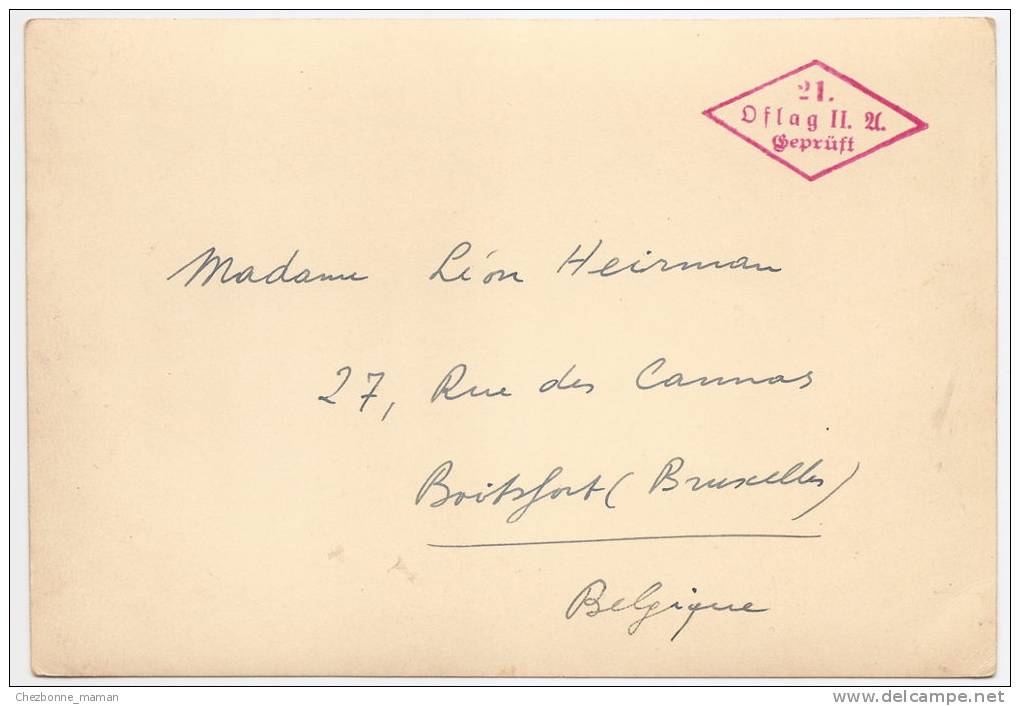 21.
Oflag II. A.
Geprüft
Madame Léon Heirman
27, Rue des Cannas
Boitsfort (Bruxelles)
Belgique
Chezbonne_maman
www.delcampe.net